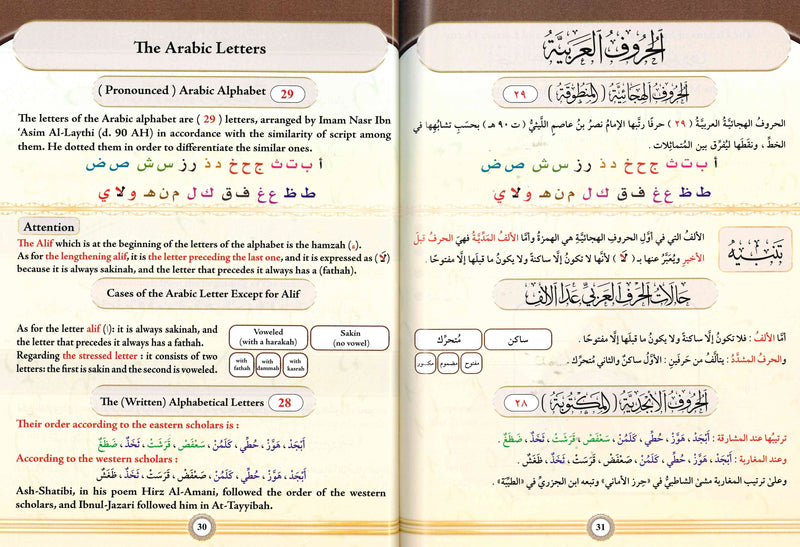 The Arabic Letters
( Pronounced ) Arabic Alphabet 29
The letters of the Arabic alphabet are ( 29 ) letters, arranged by Imam Nasr Ibn
‘Asim Al-Laythi (d. 90 AH) in accordance with the similarity of script among
them. He dotted them in order to differentiate the similar ones.
أ ب ت ث ج ح خ د ذ ر ز س ش ص ض
ط ظ ع غ ف ق ك ل م ن هـ و لا ي
Attention
The Alif which is at the beginning of the letters of the alphabet is the hamzah (ء).
As for the lengthening alif, it is the letter preceding the last one, and it is expressed as (لَا)
because it is always sakinah, and the letter that precedes it always has a (fathah).
Cases of the Arabic Letter Except for Alif
As for the letter alif (ا): it is always sakinah, and
the letter that precedes it always has a fathah.
Regarding the stressed letter : it consists of two
letters: the first is sakin and the second is voweled.
Voweled
(with a harakah)
Sakin
(no vowel)
with
fathah
with
dammah
with
kasrah
The (Written) Alphabetical Letters 28
Their order according to the eastern scholars is :
أَبْجَدْ، هَوَّزْ، حُطِّي، كَلَمُنْ، سَعْفَصْ، قَرَشَتْ، ثَخَذٌ، ضَظَغٌ
According to the western scholars :
أَبْجَدْ، هَوَّزْ، حُطِّي، كَلَمُنْ، صَعْفَضْ، قَرَسَتْ، ثَخَذٌ، ظَغَشٌ
Ash-Shatibi, in his poem Hirz Al-Amani, followed the order of the western
scholars, and Ibnul-Jazari followed him in At-Tayyibah.
30
الحروف العربية
الحروف الهجائية (المنطوقة) ٢٩
الحروفُ الهجائيةُ العربيةُ ( ٢٩ ) حرفًا رتَّبها الإمامُ نصرُ بنُ عاصمٍ اللَّيثيُّ ( ت ٩٠ هـ ) بحسَبِ تشابُهِها في
الخطِّ، ونقَطَها ليُفرِّق بين المُتماثِلات .
أ ب ت ث ج ح خ د ذ ر ز س ش ص ض
ط ظ ع غ ف ق ك ل م ن هـ و لا ي
تنبيه
الألفُ التي في أوَّلِ الحروفِ الهجائيَّةِ هي الهمزةُ وأمَّا الألفُ المَدِّيَّةُ فهيَ الحرفُ قبلَ
الأخيرِ ويُعبَّرُ عنها بـ ( لَا ) لأنَّها لا تكونُ إلَّا ساكنةً ولا يكونُ ما قبلَها إلَّا مفتوحًا .
حالات الحرف العربي عدا الألف
أمَّا الألفُ : فلا تكونُ إلَّا ساكنةً ولا يكونُ ما قبلَها إلَّا مفتوحًا .
والحرفُ المشدَّدُ : يتألَّفُ من حَرفَينِ : الأوَّلُ ساكنٌ والثاني مُتحرِّك .
ساكن
مُتحرِّك
مفتوح
مضموم
مكسور
الحروف الأبجدية (المكتوبة) ٢٨
ترتيبُها عند المشارقة : أَبْجَدْ، هَوَّزْ، حُطِّي، كَلَمُنْ، سَعْفَصْ، قَرَشَتْ، ثَخَذٌ، ضَظَغٌ .
وعند المغاربة : أَبْجَدْ، هَوَّزْ، حُطِّي، كَلَمُنْ، صَعْفَضْ، قَرَسَتْ، ثَخَذٌ، ظَغَشٌ .
وعلىٰ ترتيب المغاربة مشىٰ الشاطبيُّ في «حِرز الأماني» وتبعه ابن الجزريِّ في «الطيِّبة» .
31